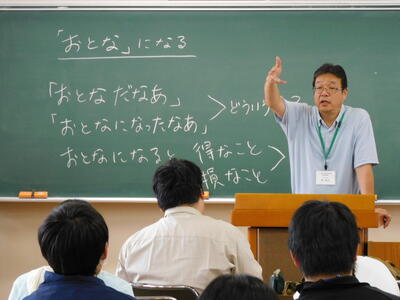 「おとな」になる
「おとなだなあ」
「おとなになったなあ」
＞どういう
おとなになると 得なこと
損なこと＞